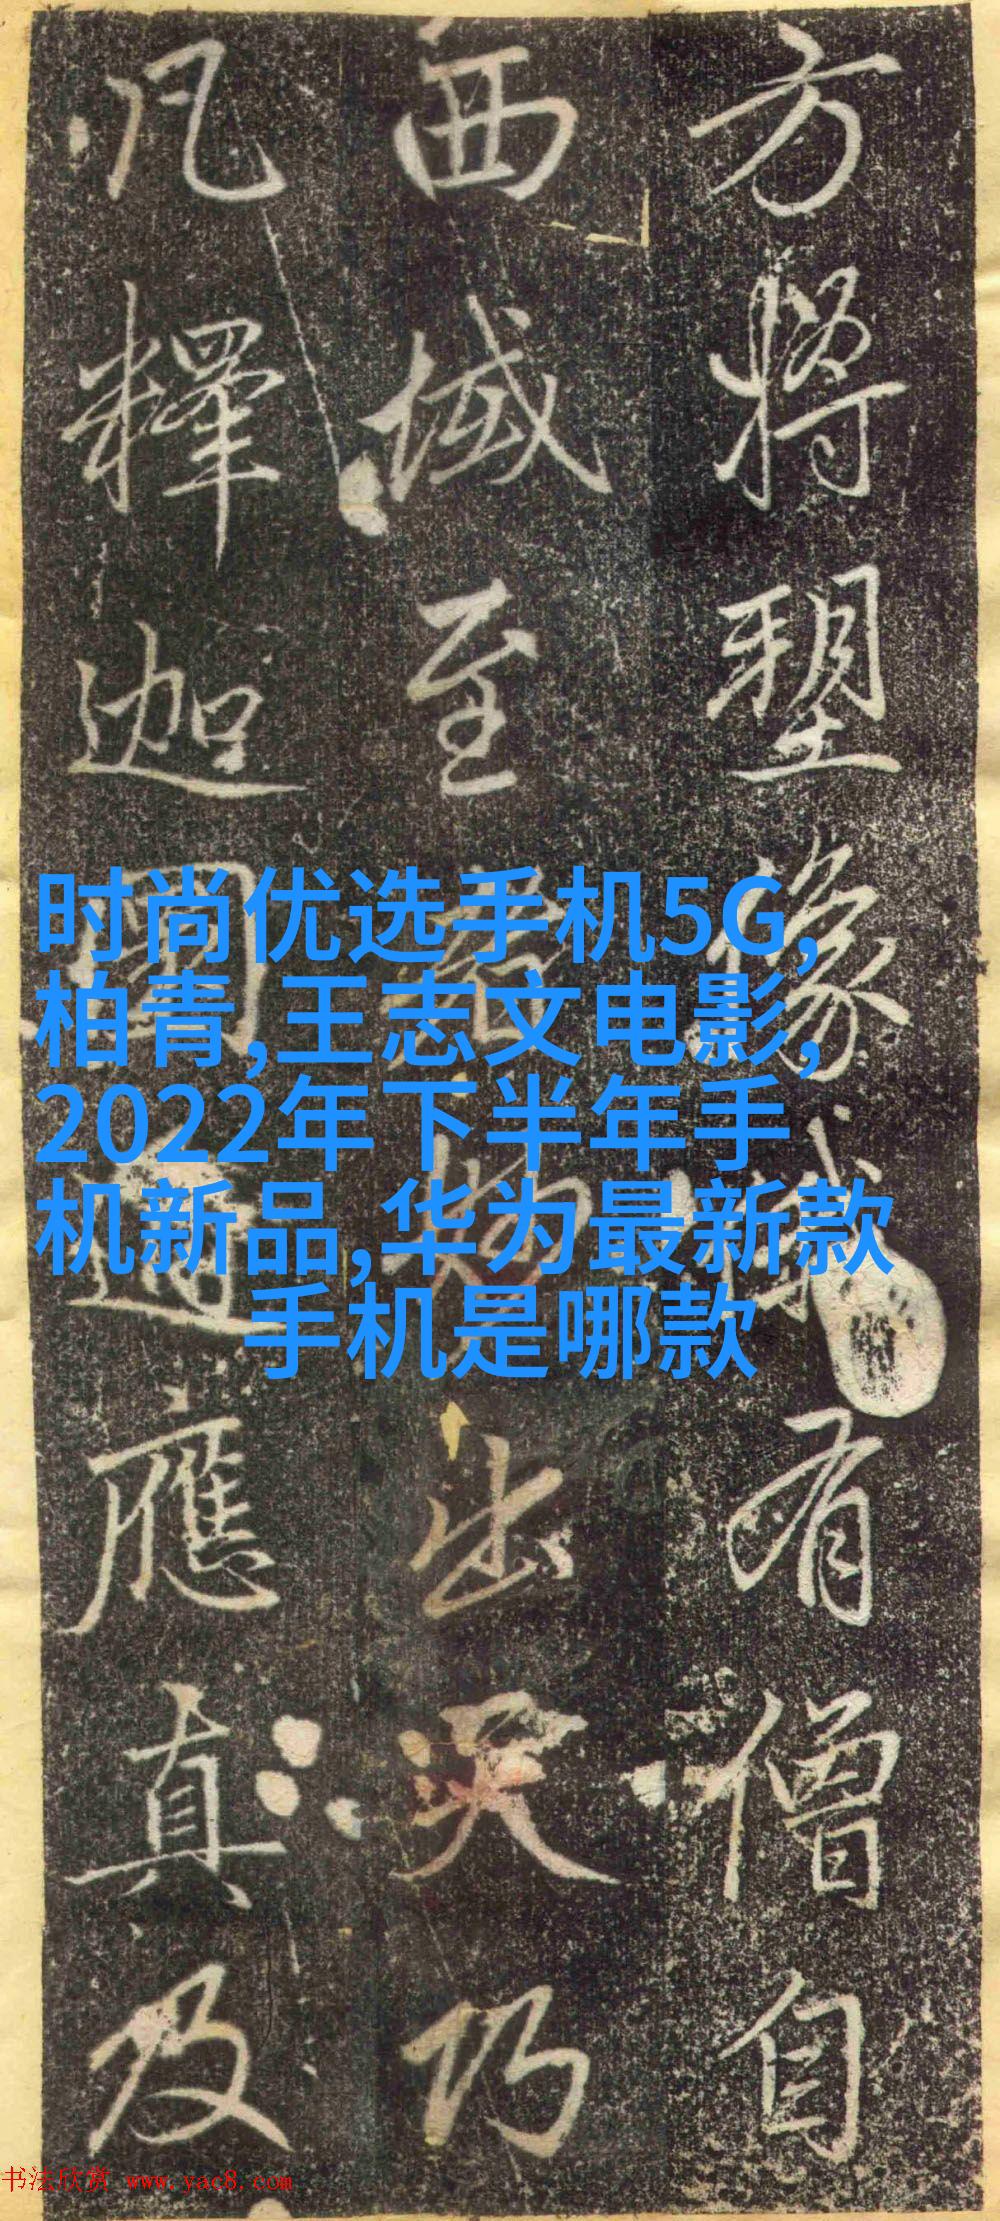 方將塑像有僧自
西域至出天乃
凡釋迦應真及
时尚优选手机5G,
柏青,王志文电影,
2022年下半年手
机新品,华为最新款
手机是哪款
书法欣赏 www.yac8.com